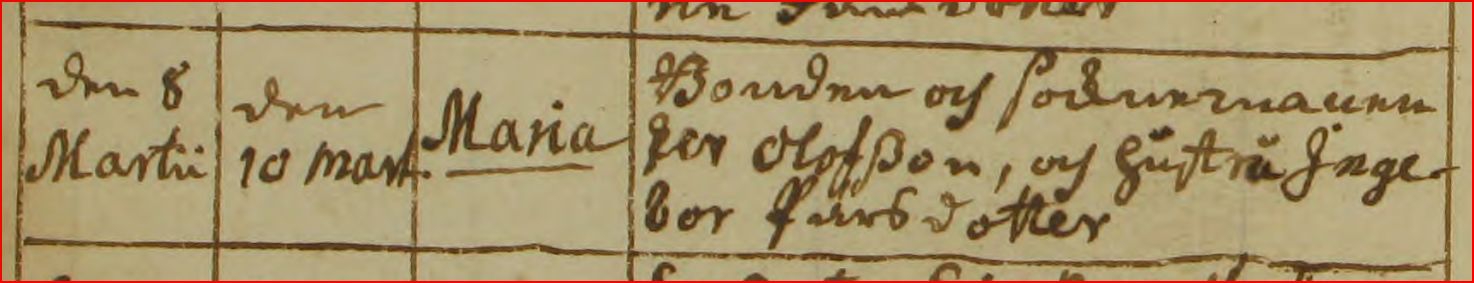 den 8
Martii
den
10 Mart.
Maria
Bonden och Socknemannen
Per Olofsson, och hustru Inge-
bor Pärsdotter